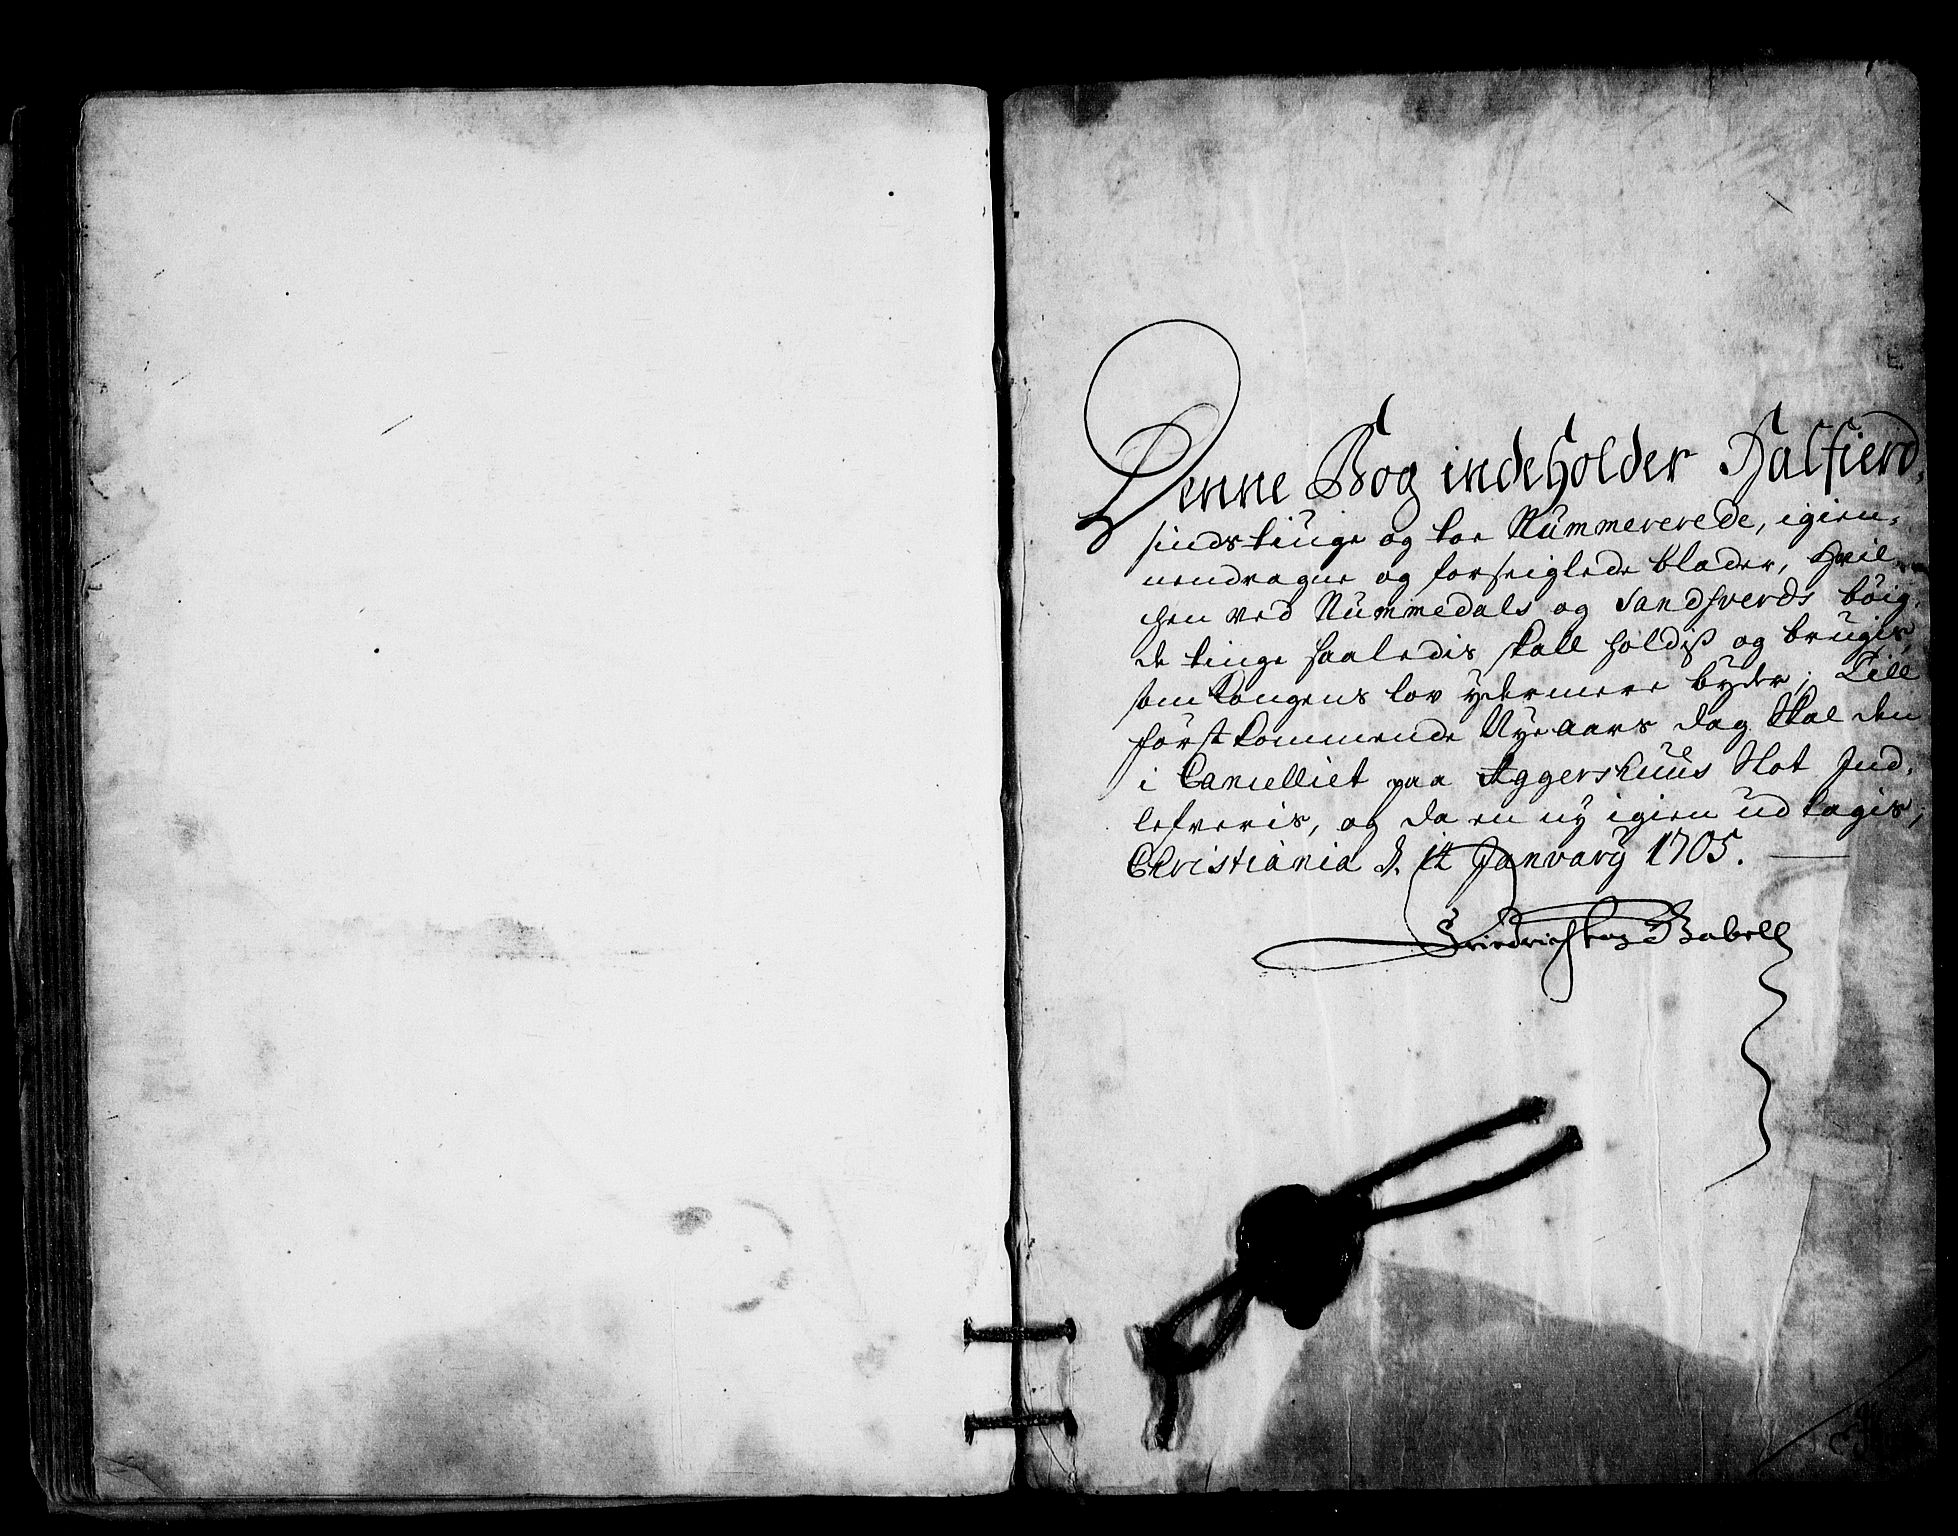 Denne Bog indeholder Halfierd,
sindstiuge og toe Nummererede, igien,
nendragne og forseiglede blader, Hvil
chen ved Nummedals og Sandsverds böig,
de tinge saaledis skall holdiß og brugis,
som Kongens lov ydermere byder; Till
först kommende Nye aars dag Skal den
i Cancelliet paa Aggershuus Slot Ind,
lefveris, og da en ny igien ud tagis;
Christiania d. 12 January 1705.
Friedrich Gabell